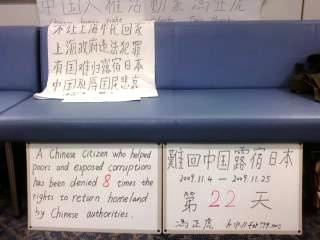 中国人权活动家冯正虎
不让上海市民回家
上海政府违法犯罪
有国难归露宿日本
中国耻辱国民悲哀
A Chinese citizen who helped
poors and exposed corruptions
has been denied 8 times the
rights to return homeland
by Chinese authorities.
難回中国露宿日本
2009.11.4 — 2009.11.25
第 22 天
冯正虎